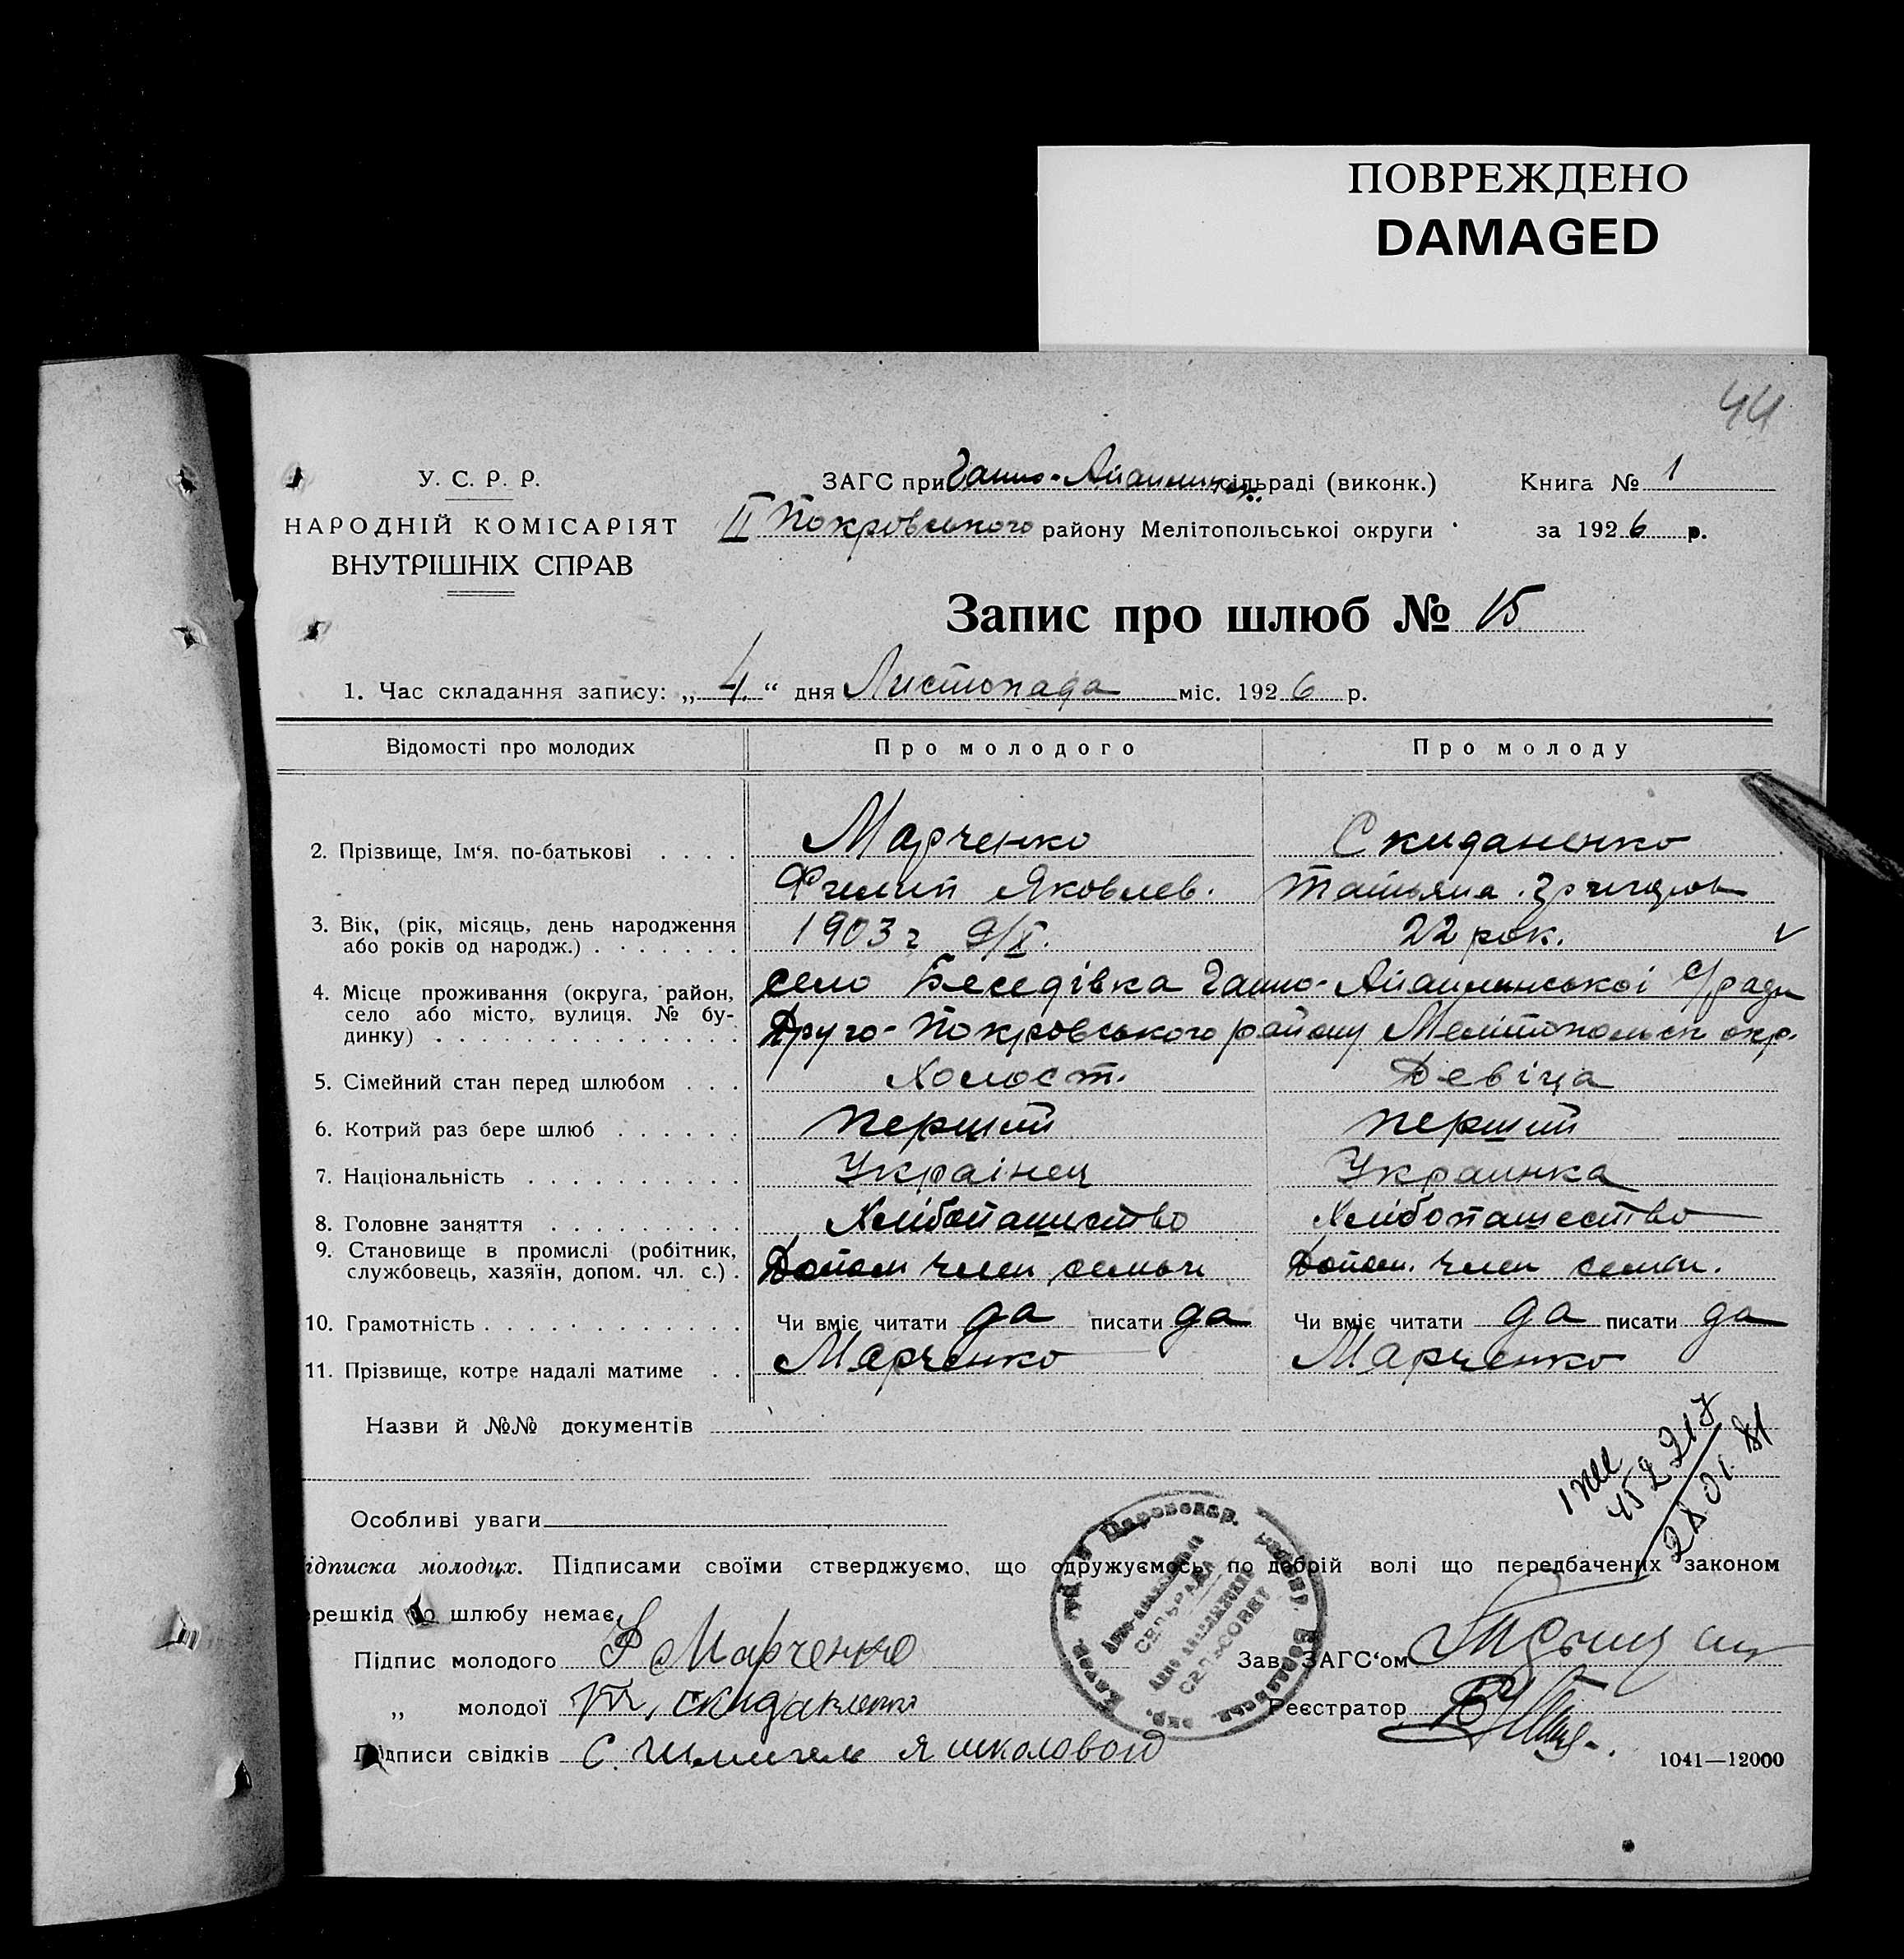 ПОВРЕЖДЕНО
DAMAGED
44
У. С. Р. Р.
НАРОДНІЙ КОМІСАРІЯТ
ВНУТРІШНІХ СПРАВ
ЗАГС при Ганно- сільраді (виконк.)
II Покровського району Мелітопольської округи
Книга № 1
за 1926 р.
Запис про шлюб № 15
1. Час складання запису: „4.“ дня Листопада міс. 1926 р.
Відомості про молодих Про молодого Про молоду
2. Прізвище, Ім‘я, по-батькові . . . . Марченко Скиданенко
Филип Яковлев. Татьяна
3. Вік, (рік, місяць, день народження
або років од народж.) . . . . . . . 1903 г 9/X. 22 рок.
4. Місце проживання (округа, район,
село або місто, вулиця, № бу-
динку) . . . . . . . . . . . . . .
село Беседівка Ганно- с/ради
Друго-Покровського району Мелітопольськ окр.
5. Сімейний стан перед шлюбом . . . Холост. Девіца
6. Котрий раз бере шлюб . . . . . . Перший Перший
7. Національність . . . . . . . . . . Українец Украинка
8. Головне заняття . . . . . . . . . Хлібопашиство Хлібопашество
9. Становище в промислі (робітник,
службовець, хазяїн, допом. чл. с.) . Допом член семьи Допом. член семьи.
10. Грамотність . . . . . . . . . . . . Чи вміє читати да писати да Чи вміє читати да писати да
11. Прізвище, котре надалі матиме . . Марченко Марченко
Назви й №№ документів
452217
28.01.81
Особливі уваги
ідписка молодих. Підписами своїми стверджуємо, що одружуємось по добрій волі що передбачених законом
ерешкід до шлюбу немає.
Підпис молодого Ф Марченко
Зав. ЗАГС‘ом
„ молодої
Реєстратор
Підписи свідків С.
СЕЛЬРАДА
СЕЛЬСОВЕТ
1041—12000